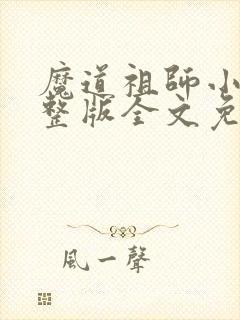 魔道祖師小
整版全文免
風一聲